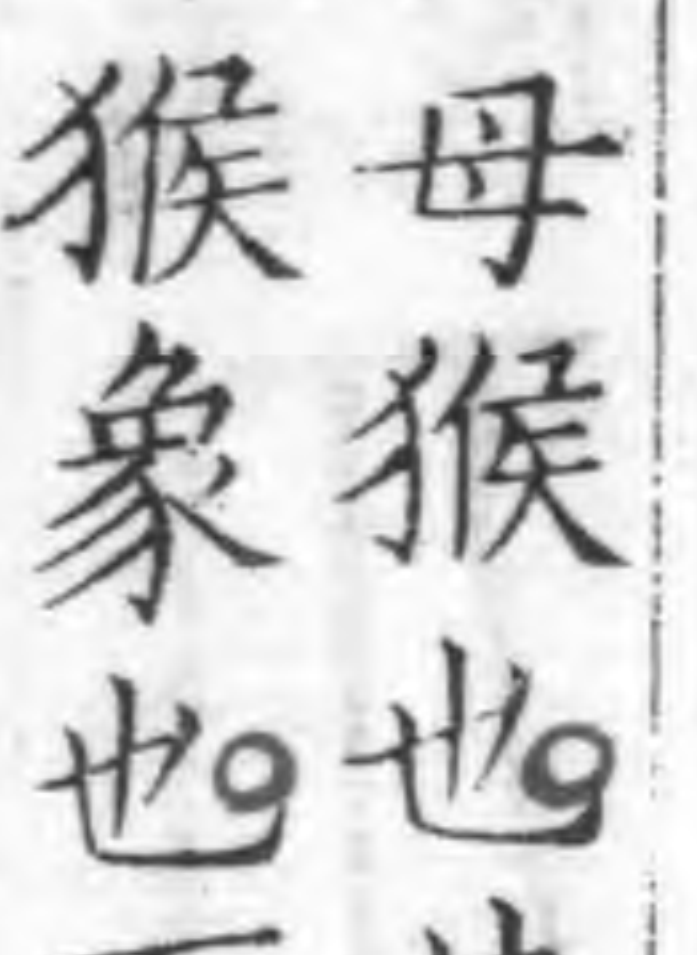 母猴也。
猴象也。